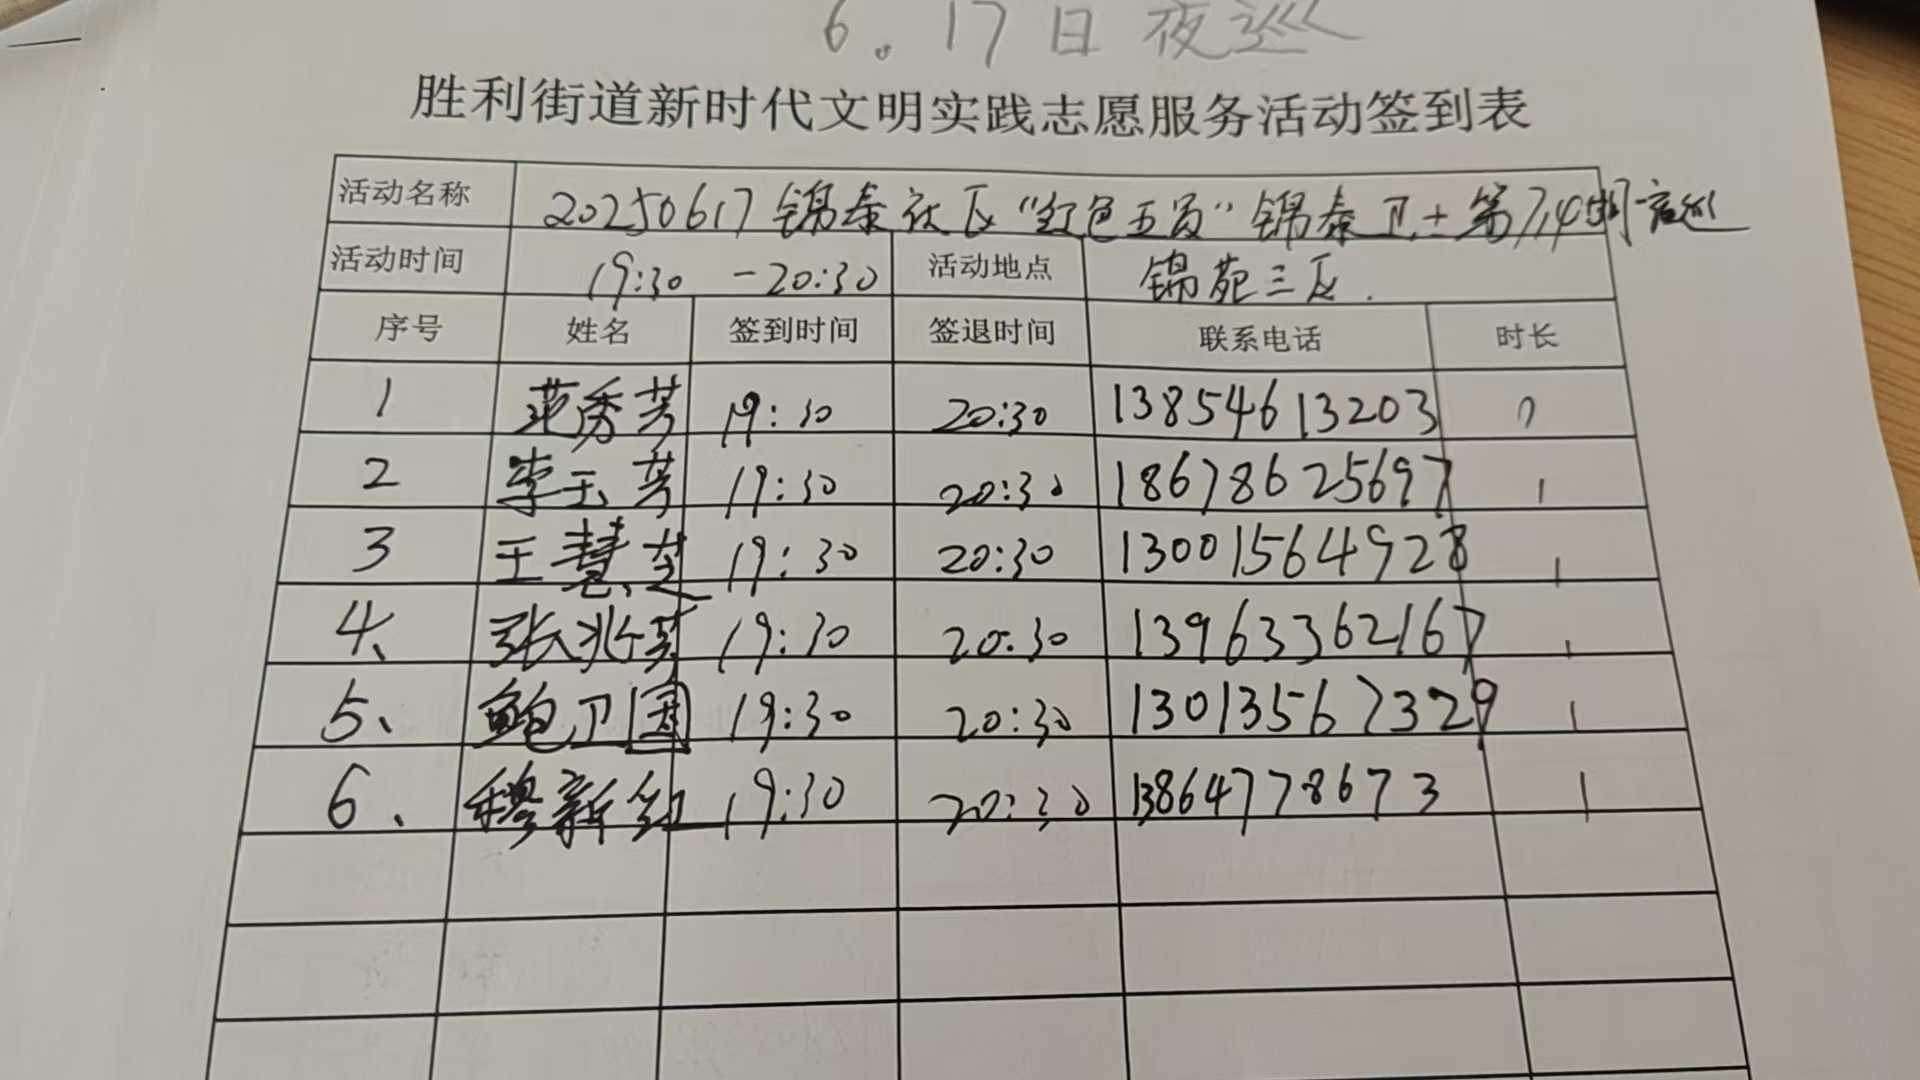 6.17日夜巡
胜利街道新时代文明实践志愿服务活动签到表
活动名称 20250617锦泰社区“红色五员”锦泰卫士第714期夜巡
活动时间 19:30 -20:30 活动地点 锦苑三区.
序号 姓名 签到时间 签退时间 联系电话 时长
1 范秀芳 19:30 20:30 13854613203 1
2 李玉芳 19:30 20:30 18678625697 1
3 王慧芝 19:30 20:30 13001564928 1
4、 张兆芬 19:30 20:30 13963362167 1
5、 鲍卫国 19:30 20:30 13013567329 1
6、 穆新红 19:30 20:30 13864778673 1